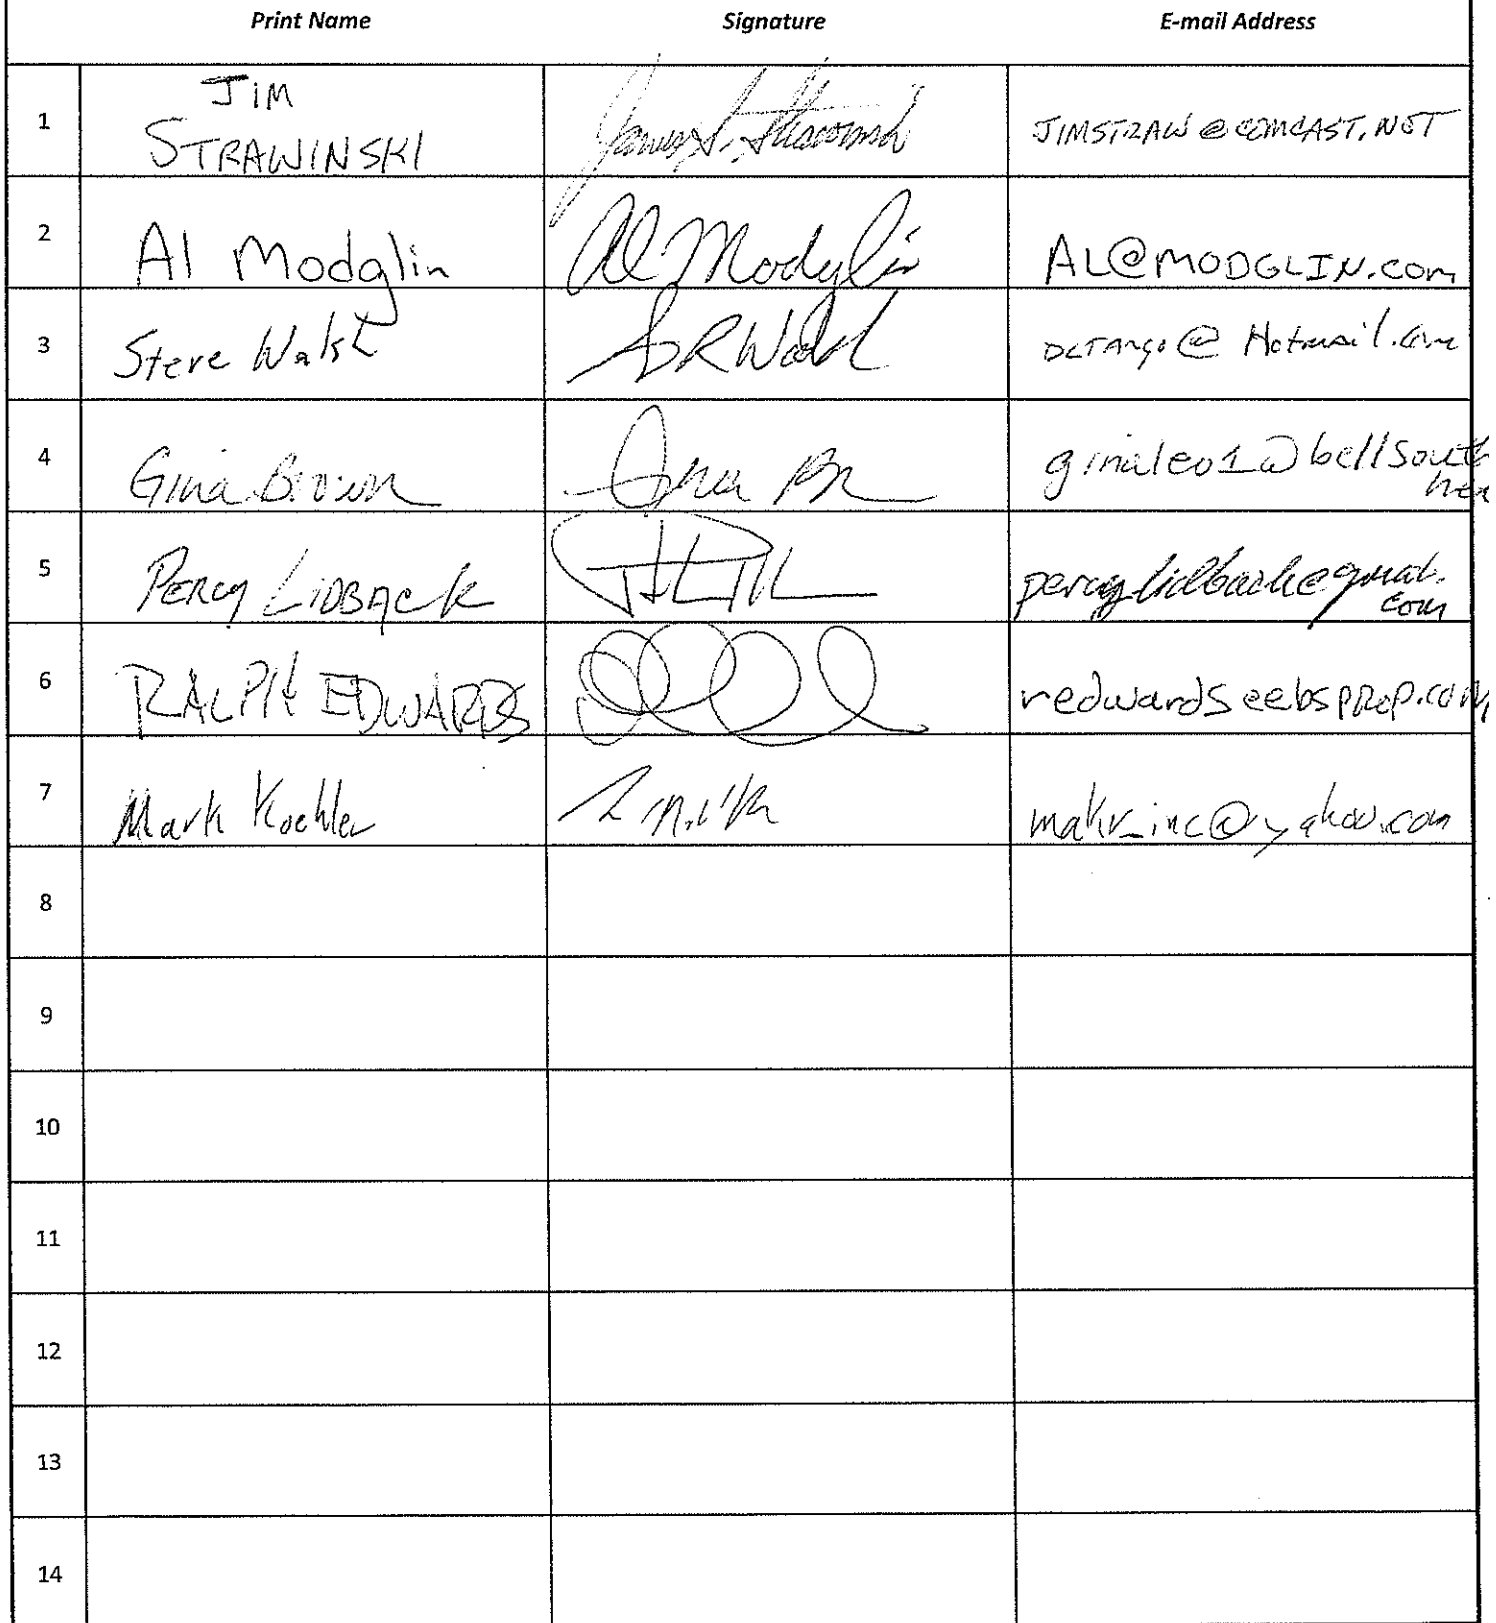 Print Name Signature E-mail Address
1 JIM STRAWINSKI James S. Strawinski JIMSTRAW@COMCAST.NET
2 Al Modglin Al Modglin AL@MODGLIN.com
3 Steve Walsh SRWalsh DCTANGO@Hotmail.com
4 Gina Brown Gina Br ginaleo1@bellsouth
net
5 PERCY LIDBACK percylidback@gmail.
com
6 RALPH EDWARDS redwards@ebsprop.com
7 Mark Koehler makr_inc@yahoo.com
8
9
10
11
12
13
14